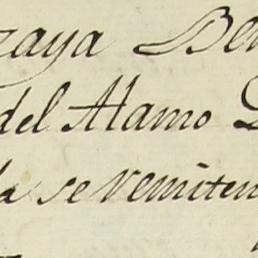 zaya Ben
del Alamo
la se remiten